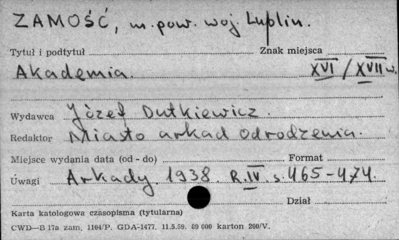 ZAMOŚĆ, m. pow. woj. Luplin.
Tytuł i podtytuł Znak miejsca
Akademia. XVI / XVII w.
Wydawca Józef Dutkiewicz.
Redaktor Miasto arkad odrodzenia.
Miejsce wydania data (od - do) Format
Uwagi Arkady. 1938 R.IV s. 465-474.
Dział
Karta katologowa czasopisma (tytularna)
CWD—B 17a zam. 1104/P. GDA-1477, 11.5.59. 69 000 karton 200/V.